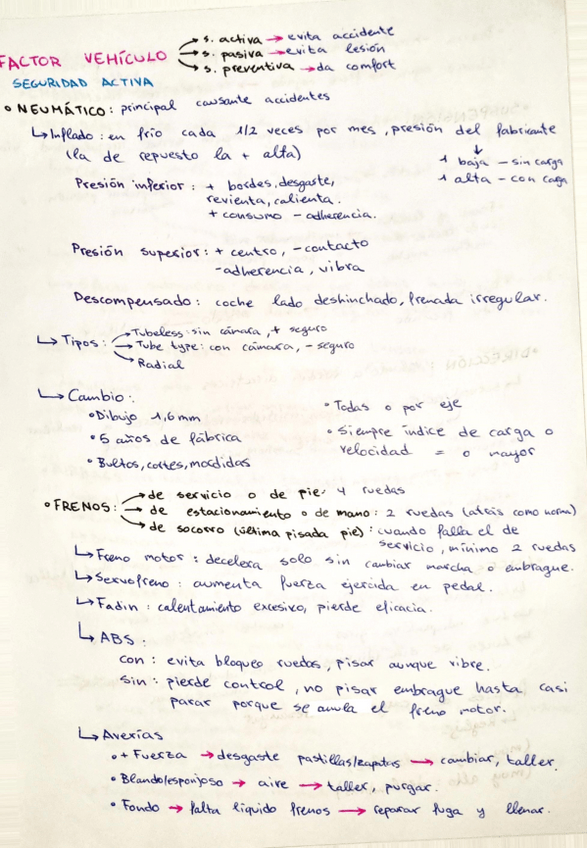 → s. activa → evita accidente
FACTOR VEHÍCULO → s. pasiva → evita lesión
→ s. preventiva → da comfort
SEGURIDAD ACTIVA
• NEUMÁTICO: principal causante accidentes
↳ Inflado: en frío cada 1/2 veces por mes, presión del fabricante
(la de repuesto la + alta)
↓
1 baja - sin carga
1 alta - con carga
Presión inferior: + bordes, desgaste,
revienta, calienta.
+ consumo - adherencia.
Presión superior: + centro, - contacto
- adherencia, vibra
Descompensado: coche lado deshinchado, frenada irregular.
↳ Tipos: → Tubeless: sin cámara, + seguro
→ Tube type: con cámara, - seguro
→ Radial
↳ Cambio:
• Dibujo 1,6mm
• 5 años de fábrica
• Bultos, cortes, mordidas
• Todas o por eje
• Siempre índice de carga o
velocidad = o mayor
• FRENOS: → de servicio o de pie: 4 ruedas
→ de estacionamiento o de mano: 2 ruedas (atrás como norma)
→ de socorro (última pisada pie): cuando falla el de
servicio, mínimo 2 ruedas
↳ Freno motor: decelera solo sin cambiar marcha o embrague.
↳ Servofreno: aumenta fuerza ejercida en pedal.
↳ Fadin: calentamiento excesivo, pierde eficacia.
↳ ABS:
con: evita bloqueo ruedas, pisar aunque vibre.
sin: pierde control, no pisar embrague hasta casi
parar porque se anula el freno motor.
↳ Averías
• + Fuerza → desgaste pastillas/zapatas → cambiar, taller.
• Blando/esponjoso → aire → taller, purgar.
• Fondo → falta líquido frenos → reparar fuga y llenar.